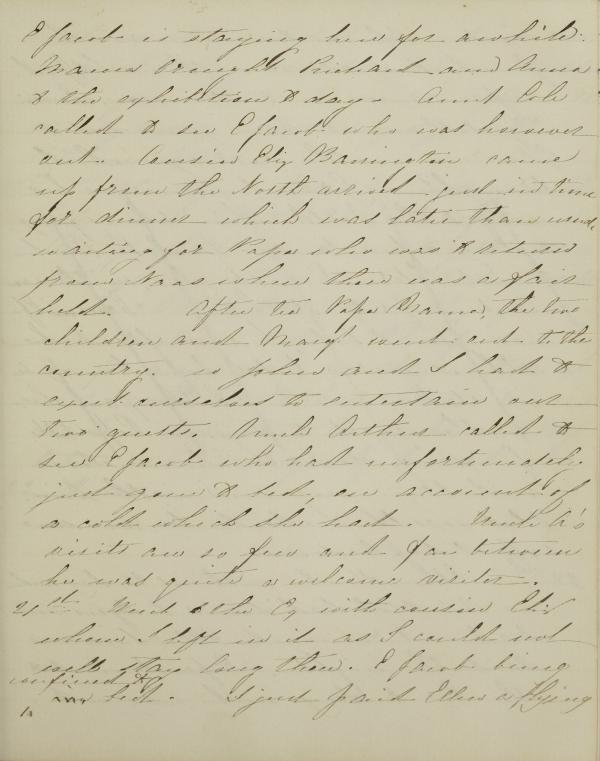 E Jacob is staying here for awhile.
Mama brought Richard and Anna
to the exhibition to day. Aunt Cole
called to see E Jacob who was however
out. Cousin Eliz Barrington came
up from the North arrived just in time
for dinner which was later than usual
waiting for Papa who was to return
from Naas where there was a fair
held. After tea Papa Mama, the two
children and Margt went out to the
country. so John and I had to
exert ourselves to entertain our
two guests. Uncle Arthur called to
see E Jacob who had unfortunately
just gone to bed, on account of
a cold which she had. Uncle A's
visits are so few and far between
he was quite a welcome visitor.
21st Went to the Ex with cousin Eliz
whom I left in it as I could not
well stay long then. E Jacob being
confined to
bed. I just paid Ellen a flying